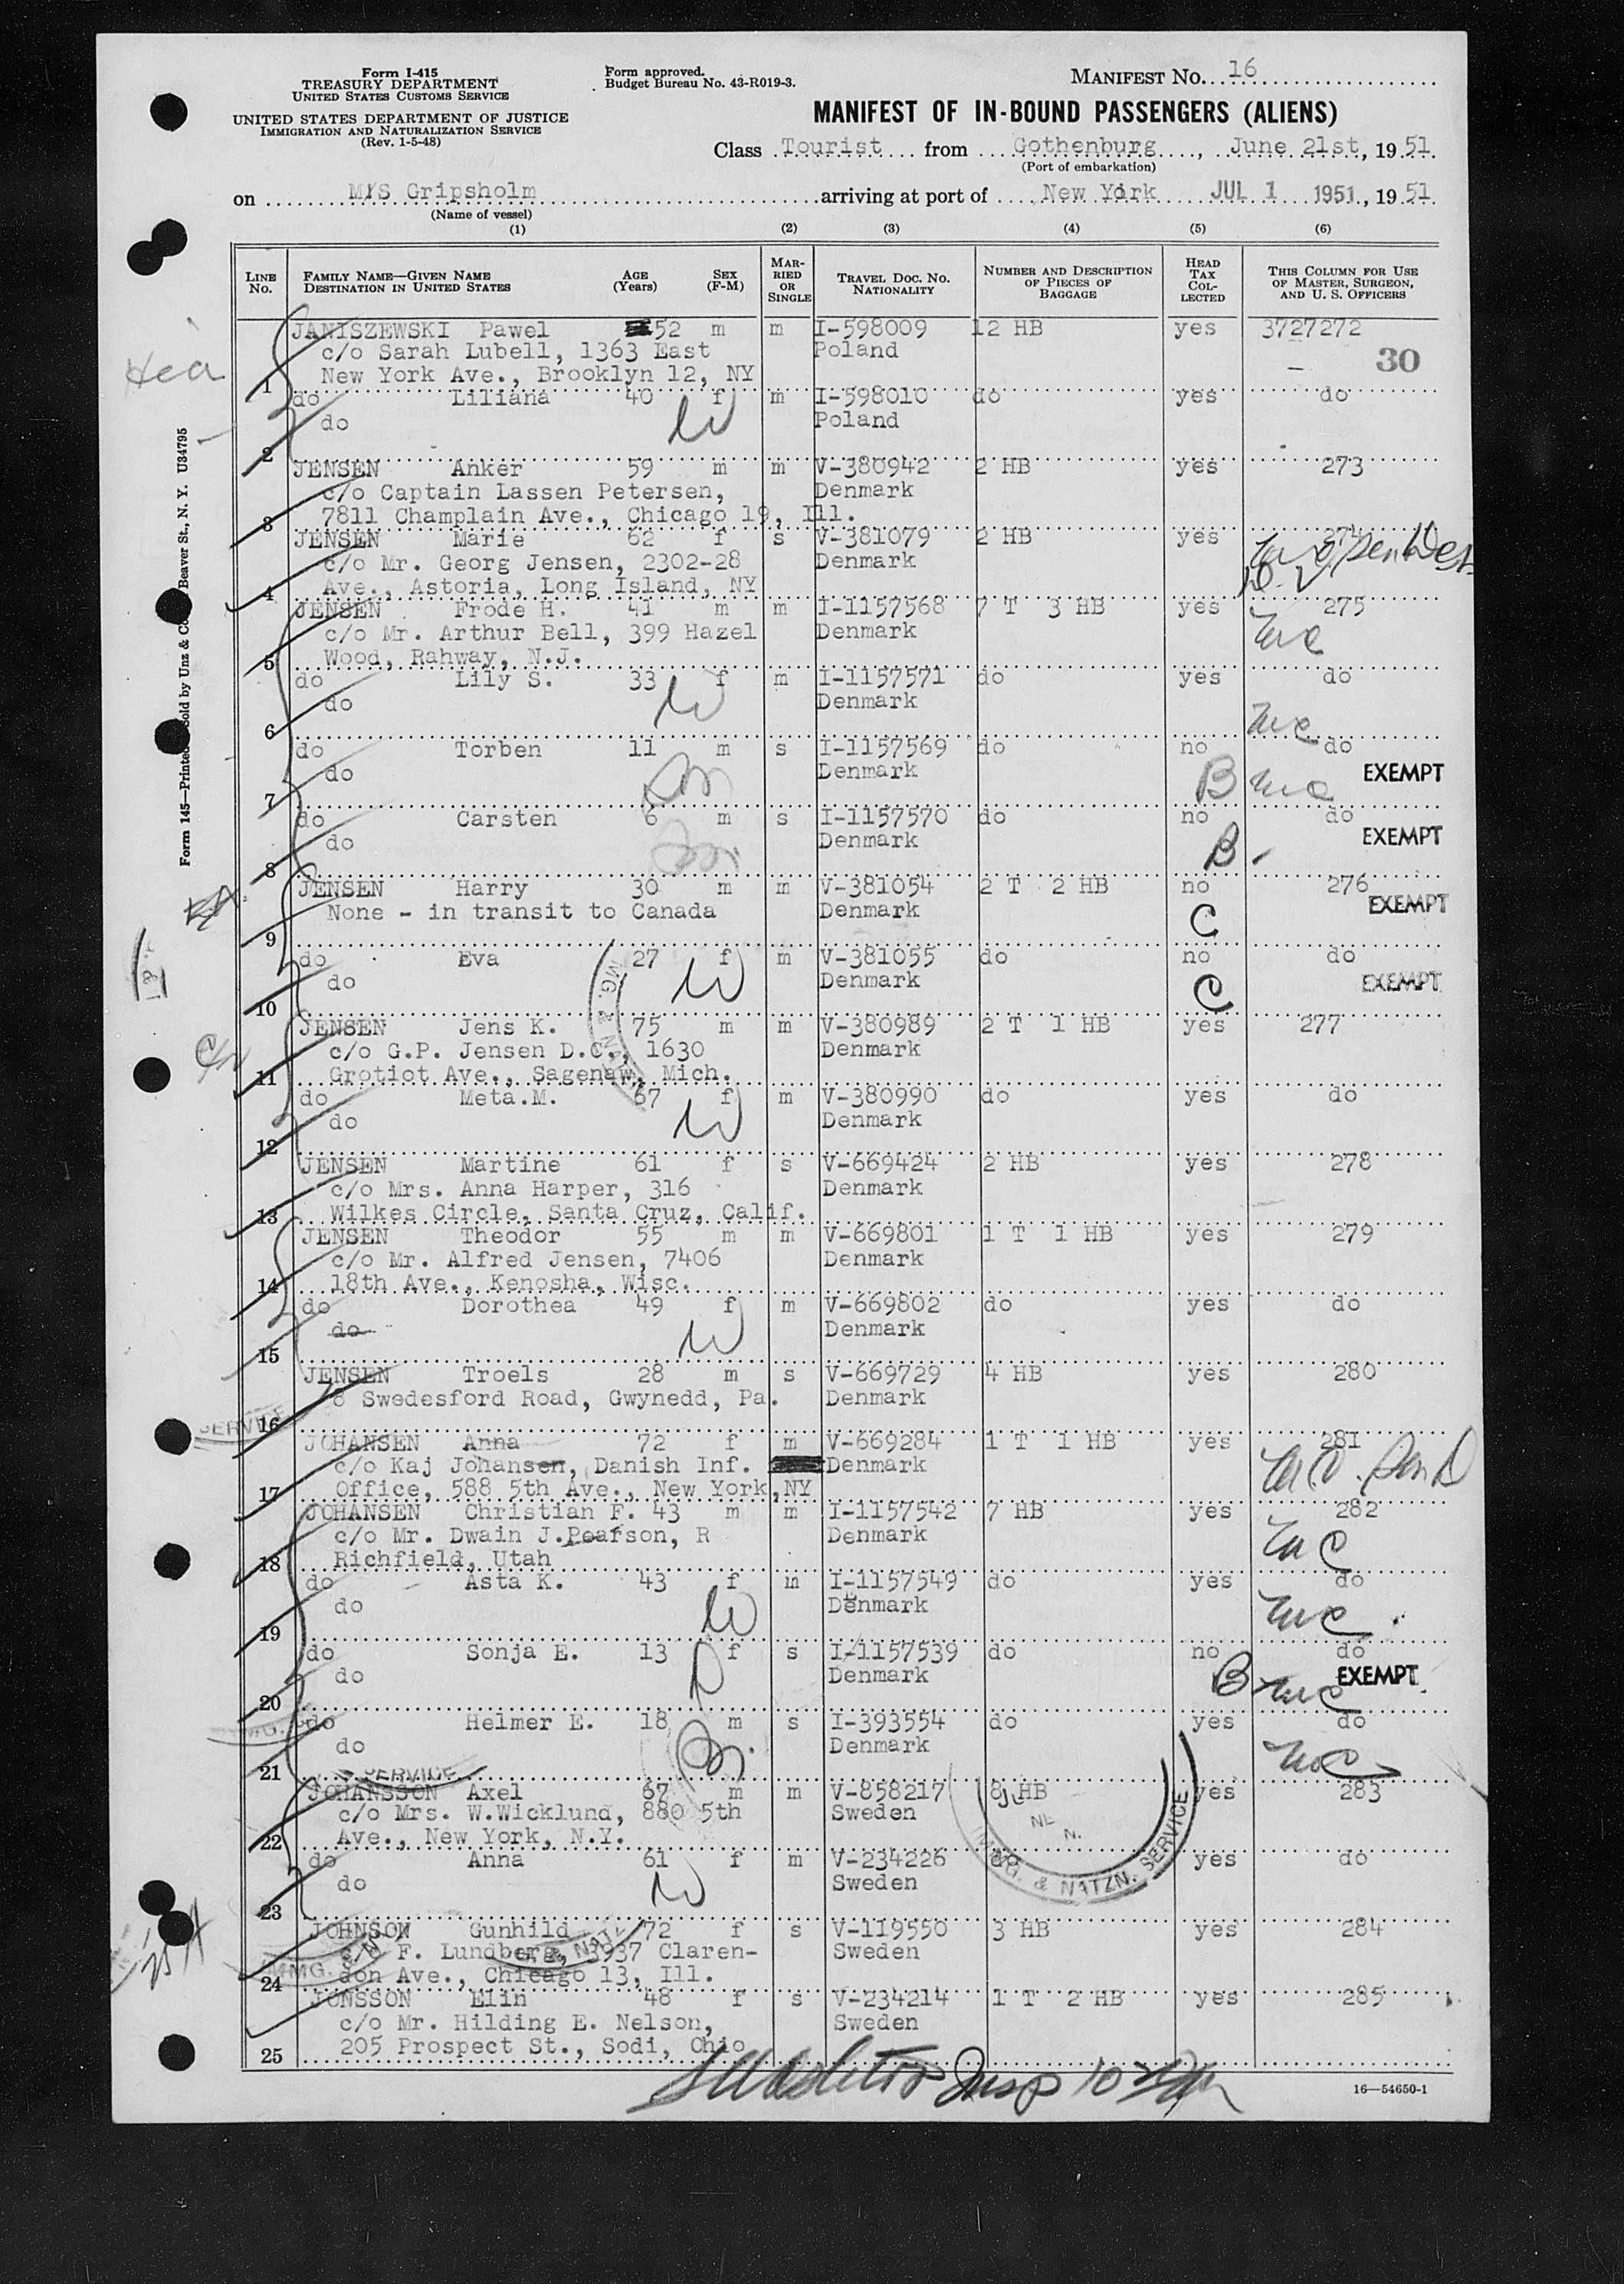 Form I-415
TREASURY DEPARTMENT
UNITED STATES CUSTOMS SERVICE
UNITED STATES DEPARTMENT OF JUSTICE
IMMIGRATION AND NATURALIZATION SERVICE
(Rev. 1-5-48)
Form approved.
Budget Bureau No. 43-R019-3.
MANIFEST NO. 16
MANIFEST OF IN-BOUND PASSENGERS (ALIENS)
Class Tourist from Gothenburg, June 21st, 19 51
(Port of embarkation)
on M/S Gripsholm arriving at port of New York JUL 1 1951, 19 51
(Name of vessel)
(1) (2) (3) (4) (5) (6)
LINE NO. FAMILY NAME—GIVEN NAME DESTINATION IN UNITED STATES AGE (Years) SEX (F-M) MARRIED OR SINGLE TRAVEL DOC. NO. NATIONALITY NUMBER AND DESCRIPTION OF PIECES OF BAGGAGE HEAD TAX COLLECTED THIS COLUMN FOR USE OF MASTER, SURGEON, AND U. S. OFFICERS
JANISZEWSKI Pawel 52 m m I-598009 12 HB yes 3727272
c/o Sarah Lubell, 1363 East Poland 30
1 New York Ave., Brooklyn 12, NY
do Liliana 40 f m I-598010 do yes do
do W Poland
2
JENSEN Anker 59 m m V-380942 2 HB yes 273
c/o Captain Lassen Petersen, Denmark
3 7811 Champlain Ave., Chicago 19, Ill.
JENSEN Marie 62 f s V-381079 2 HB yes 274
c/o Mr. Georg Jensen, 2302-28 Denmark
4 Ave., Astoria, Long Island, NY
JENSEN Frode H. 41 m m I-1157568 7 T 3 HB yes 275
c/o Mr. Arthur Bell, 399 Hazel Denmark
5 Wood, Rahway, N.J.
do Lily S. 33 f m I-1157571 do yes do
do W Denmark
6
do Torben 11 m s I-1157569 do no do
do Denmark B EXEMPT
7
do Carsten 6 m s I-1157570 do no do
do Denmark B EXEMPT
8
JENSEN Harry 30 m m V-381054 2 T 2 HB no 276
None - in transit to Canada Denmark C EXEMPT
9
do Eva 27 f m V-381055 do no do
do W Denmark C EXEMPT
10
JENSEN Jens K. 75 m m V-380989 2 T 1 HB yes 277
c/o G.P. Jensen D.C., 1630 Denmark
11 Grotiot Ave., Sagenaw, Mich.
do Meta.M. 67 f m V-380990 do yes do
do W Denmark
12
JENSEN Martine 61 f s V-669424 2 HB yes 278
c/o Mrs. Anna Harper, 316 Denmark
13 Wilkes Circle, Santa Cruz, Calif.
JENSEN Theodor 55 m m V-669801 1 T 1 HB yes 279
c/o Mr. Alfred Jensen, 7406 Denmark
14 18th Ave., Kenosha, Wisc.
do Dorothea 49 f m V-669802 do yes do
do W Denmark
15
JENSEN Troels 28 m s V-669729 4 HB yes 280
8 Swedesford Road, Gwynedd, Pa. Denmark
16
JOHANSEN Anna 72 f m V-669284 1 T 1 HB yes 281
c/o Kaj Johansen, Danish Inf. Denmark
17 Office, 588 5th Ave., New York,NY
JOHANSEN Christian F. 43 m m I-1157542 7 HB yes 282
c/o Mr. Dwain J.Pearson, R Denmark
18 Richfield, Utah
do Asta K. 43 f m I-1157549 do yes do
do W Denmark
19
do Sonja E. 13 f s I-1157539 do no do
do Denmark B EXEMPT
20
do Helmer E. 18 m s I-393554 do yes do
do Denmark
21
JOHANSSON Axel 67 m m V-858217 8 HB yes 283
c/o Mrs. W.Wicklund, 880 5th Sweden
22 Ave., New York, N.Y.
do Anna 61 f m V-234226 do yes do
do W Sweden
23
JOHNSON Gunhild 72 f s V-119550 3 HB yes 284
c/o F. Lundberg, 3937 Claren- Sweden
24 don Ave., Chicago 13, Ill.
JONSSON Elin 48 f s V-234214 1 T 2 HB yes 285
c/o Mr. Hilding E. Nelson, Sweden
25 205 Prospect St., Sodi, Ohio
IMMG. & NATZN. SERVICE
16—54650-1
Form 145—Printed Sold by Unz & Co Beaver St., N. Y. U34795